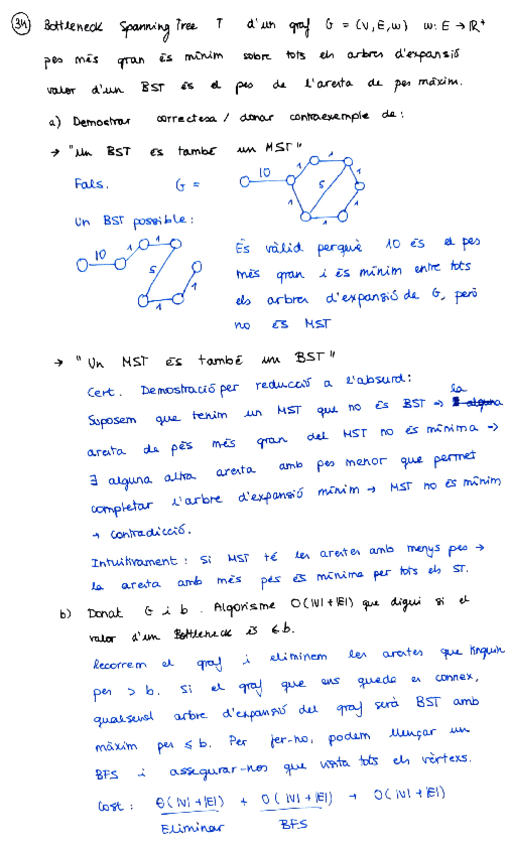 34 Bottleneck Spanning Tree T d'un graf G = (V, E, w) w: E → R⁺
pes més gran és mínim sobre tots els arbres d'expansió
valor d'un BST és el pes de l'aresta de pes màxim.
a) Demostrar correctesa / donar contraexemple de:
→ "Un BST és també un MST"
Fals. G = 10 1 1 1 5 1 1 1
Un BST possible:
10 1 1 5 1 1
És vàlid perquè 10 és el pes
més gran i és mínim entre tots
els arbres d'expansió de G, però
no és MST
→ "Un MST és també un BST"
Cert. Demostració per reducció a l'absurd:
Suposem que tenim un MST que no és BST → la
aresta de pès més gran del MST no és mínima →
∃ alguna altra aresta amb pes menor que permet
completar l'arbre d'expansió mínim → MST no és mínim
→ contradicció.
Intuitivament: si MST té les arestes amb menys pes →
la aresta amb més pes és mínima per tots els ST.
b) Donat G i b. Algorisme O(|V|+|E|) que digui si el
valor d'un Bottleneck és ≤ b.
Recorrem el graf i eliminem les arestes que tinguin
pes > b. Si el graf que ens queda és connex,
qualsevol arbre d'expansió del graf serà BST amb
màxim pes ≤ b. Per fer-ho, podem llençar un
BFS i assegurar-nos que visita tots els vèrtexs.
Cost: Θ(|V|+|E|) + O(|V|+|E|) → O(|V|+|E|)
Eliminar BFS